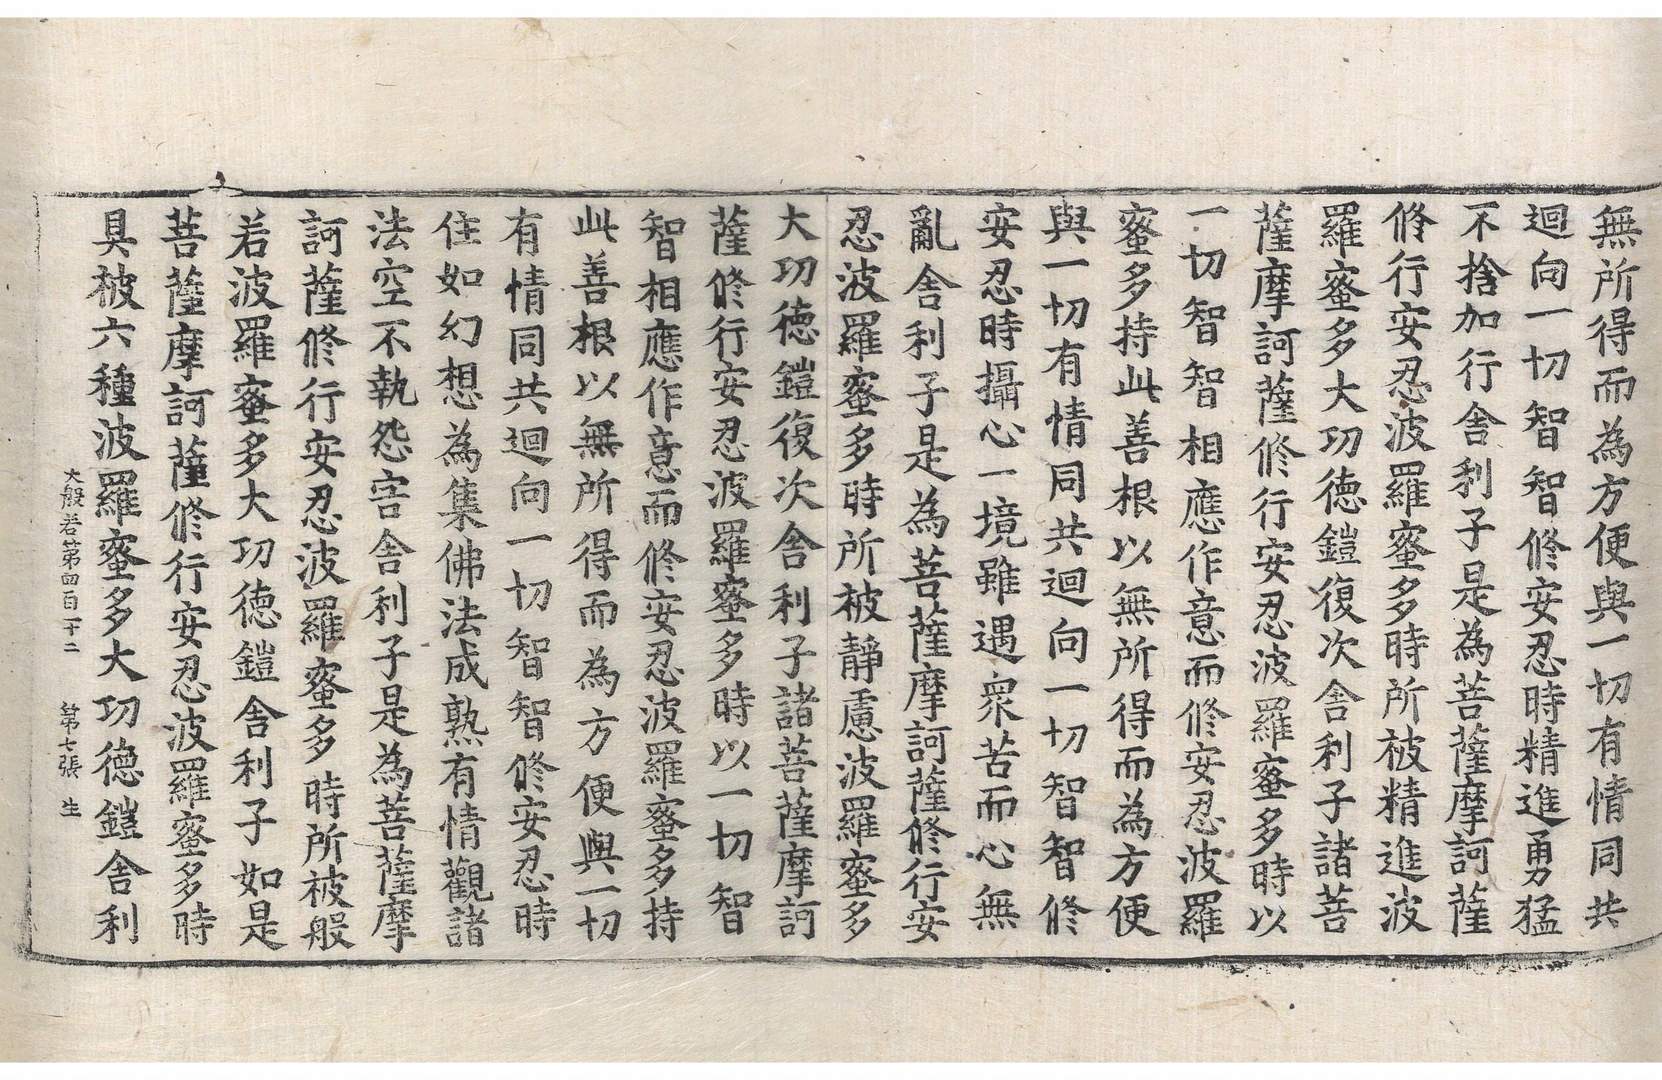 無所得而為方便與一切有情同共
迴向一切智智修安忍時精進勇猛
不捨加行舍利子是為菩薩摩訶薩
修行安忍波羅蜜多時所被精進波
羅蜜多大功德鎧復次舍利子諸菩
薩摩訶薩修行安忍波羅蜜多時以
一切智智相應作意而修安忍波羅
蜜多持此善根以無所得而為方便
與一切有情同共迴向一切智智修
安忍時攝心一境雖遇眾苦而心無
亂舍利子是為菩薩摩訶薩修行安
忍波羅蜜多時所被靜慮波羅蜜多
大功德鎧復次舍利子諸菩薩摩訶
薩修行安忍波羅蜜多時以一切智
智相應作意而修安忍波羅蜜多持
此善根以無所得而為方便與一切
有情同共迴向一切智智修安忍時
住如幻想為集佛法成熟有情觀諸
法空不執怨害舍利子是為菩薩摩
訶薩修行安忍波羅蜜多時所被般
若波羅蜜多大功德鎧舍利子如是
菩薩摩訶薩修行安忍波羅蜜多時
具被六種波羅蜜多大功德鎧舍利
大般若第四百十二 第七張 生